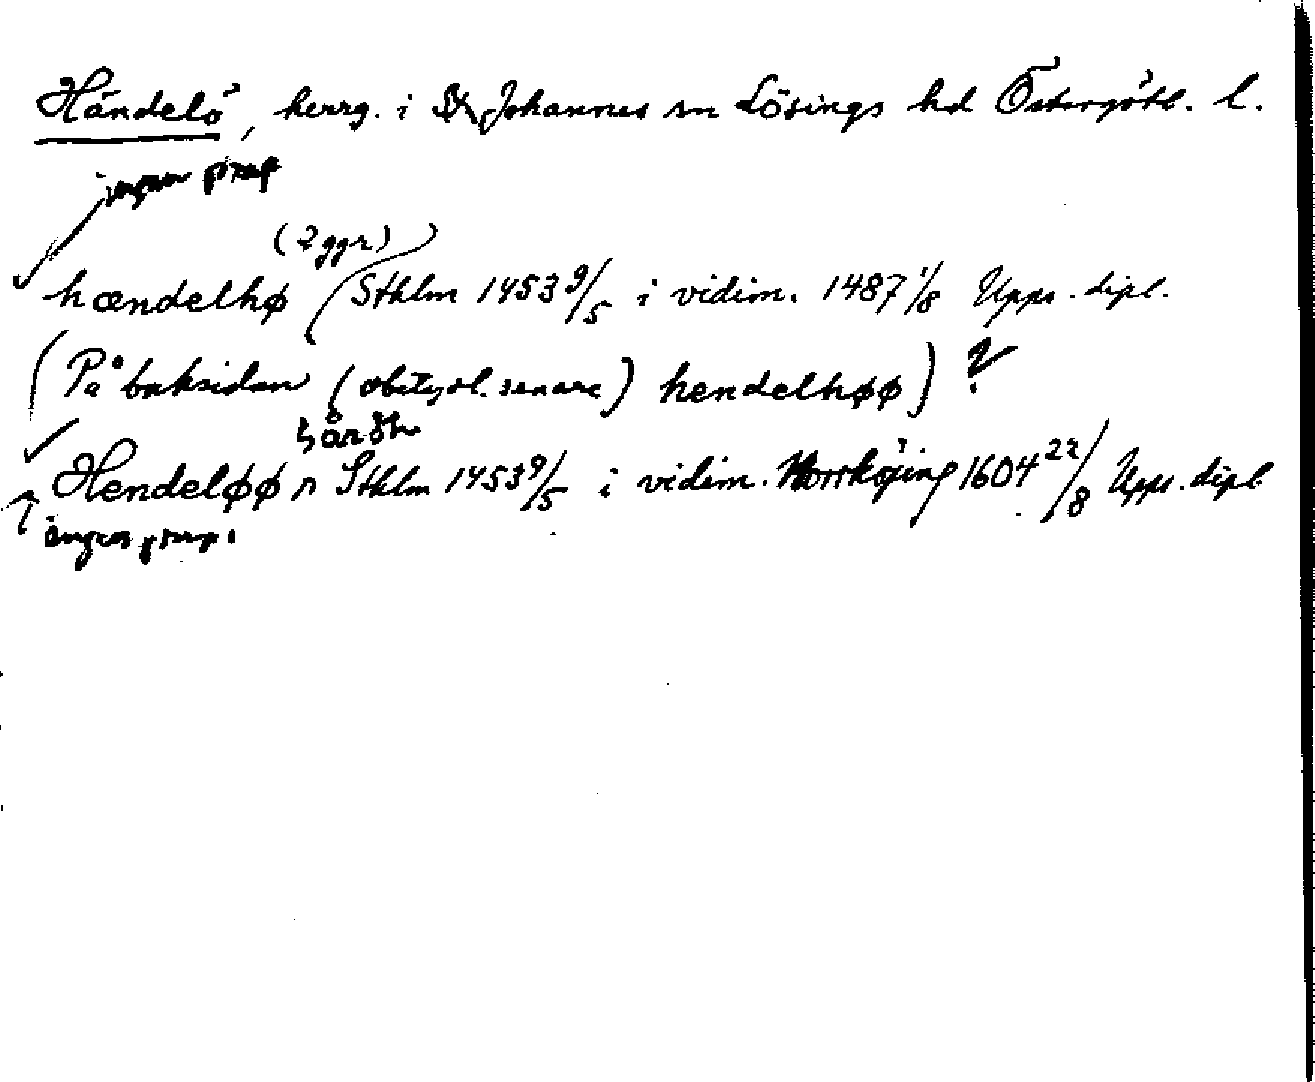 Händelö, herrg. i St Johannes sn Lösings hd Östergötl. l.
ingen prep
(2 ggr)
hændelhø (Sthlm 1453 9/5 i vidim. 1487 1/8 Upps. dipl.
(På baksidan (obetydl. senare) hendelhøø) ?
Hendeløø Sthlm 1453 9/5 i vidim. Norrköping 1604 22/8 Upps. dipl
ingen prep.